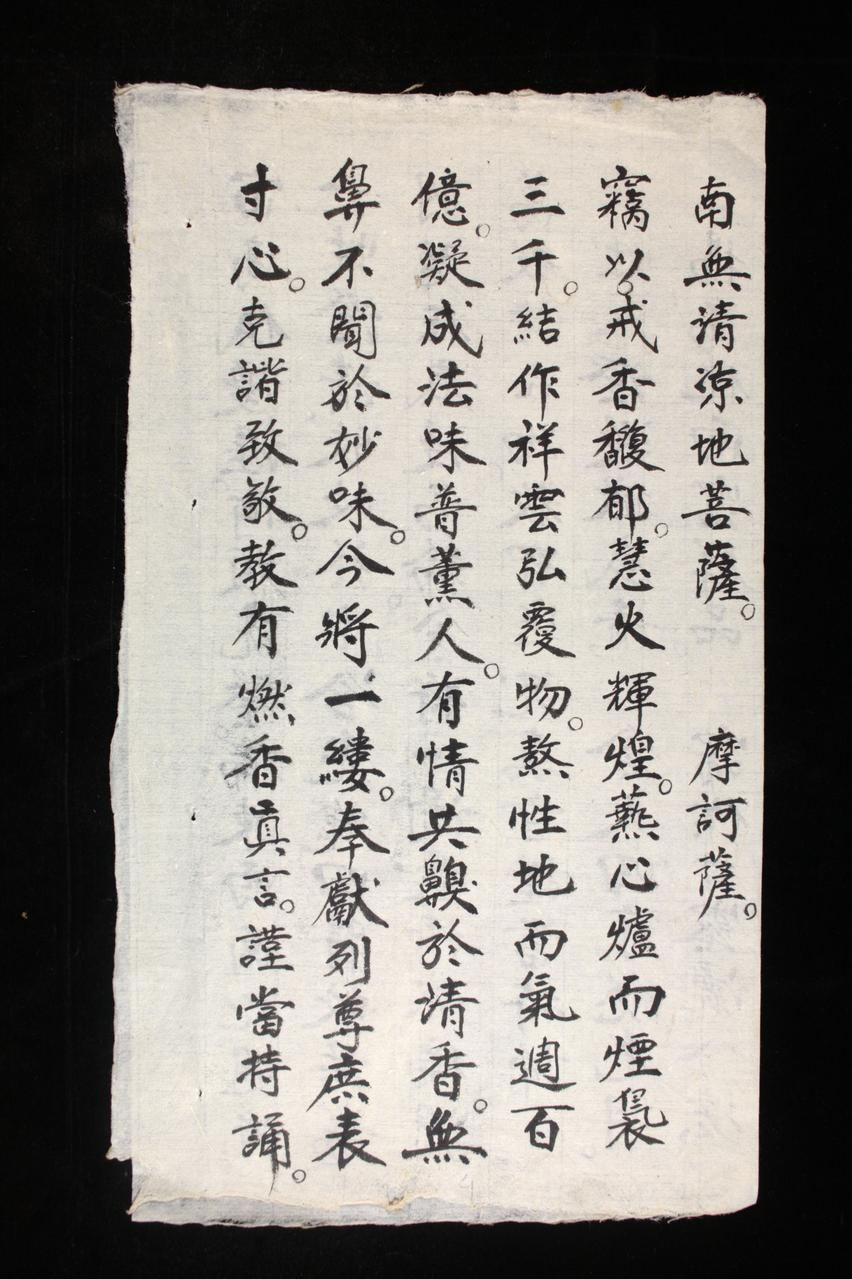 南無清涼地菩薩。摩訶薩。
竊以。戒香馥郁。慧火輝煌。爇心爐而煙裊
三千。結作祥雲弘覆物。熬性地而氣週百
億。凝成法味普薰人。有情共齅於清香。無
鼻不聞於妙味。今將一縷。奉獻列尊庶表
寸心。克諧致敬。教有燃香眞言。謹當持誦。